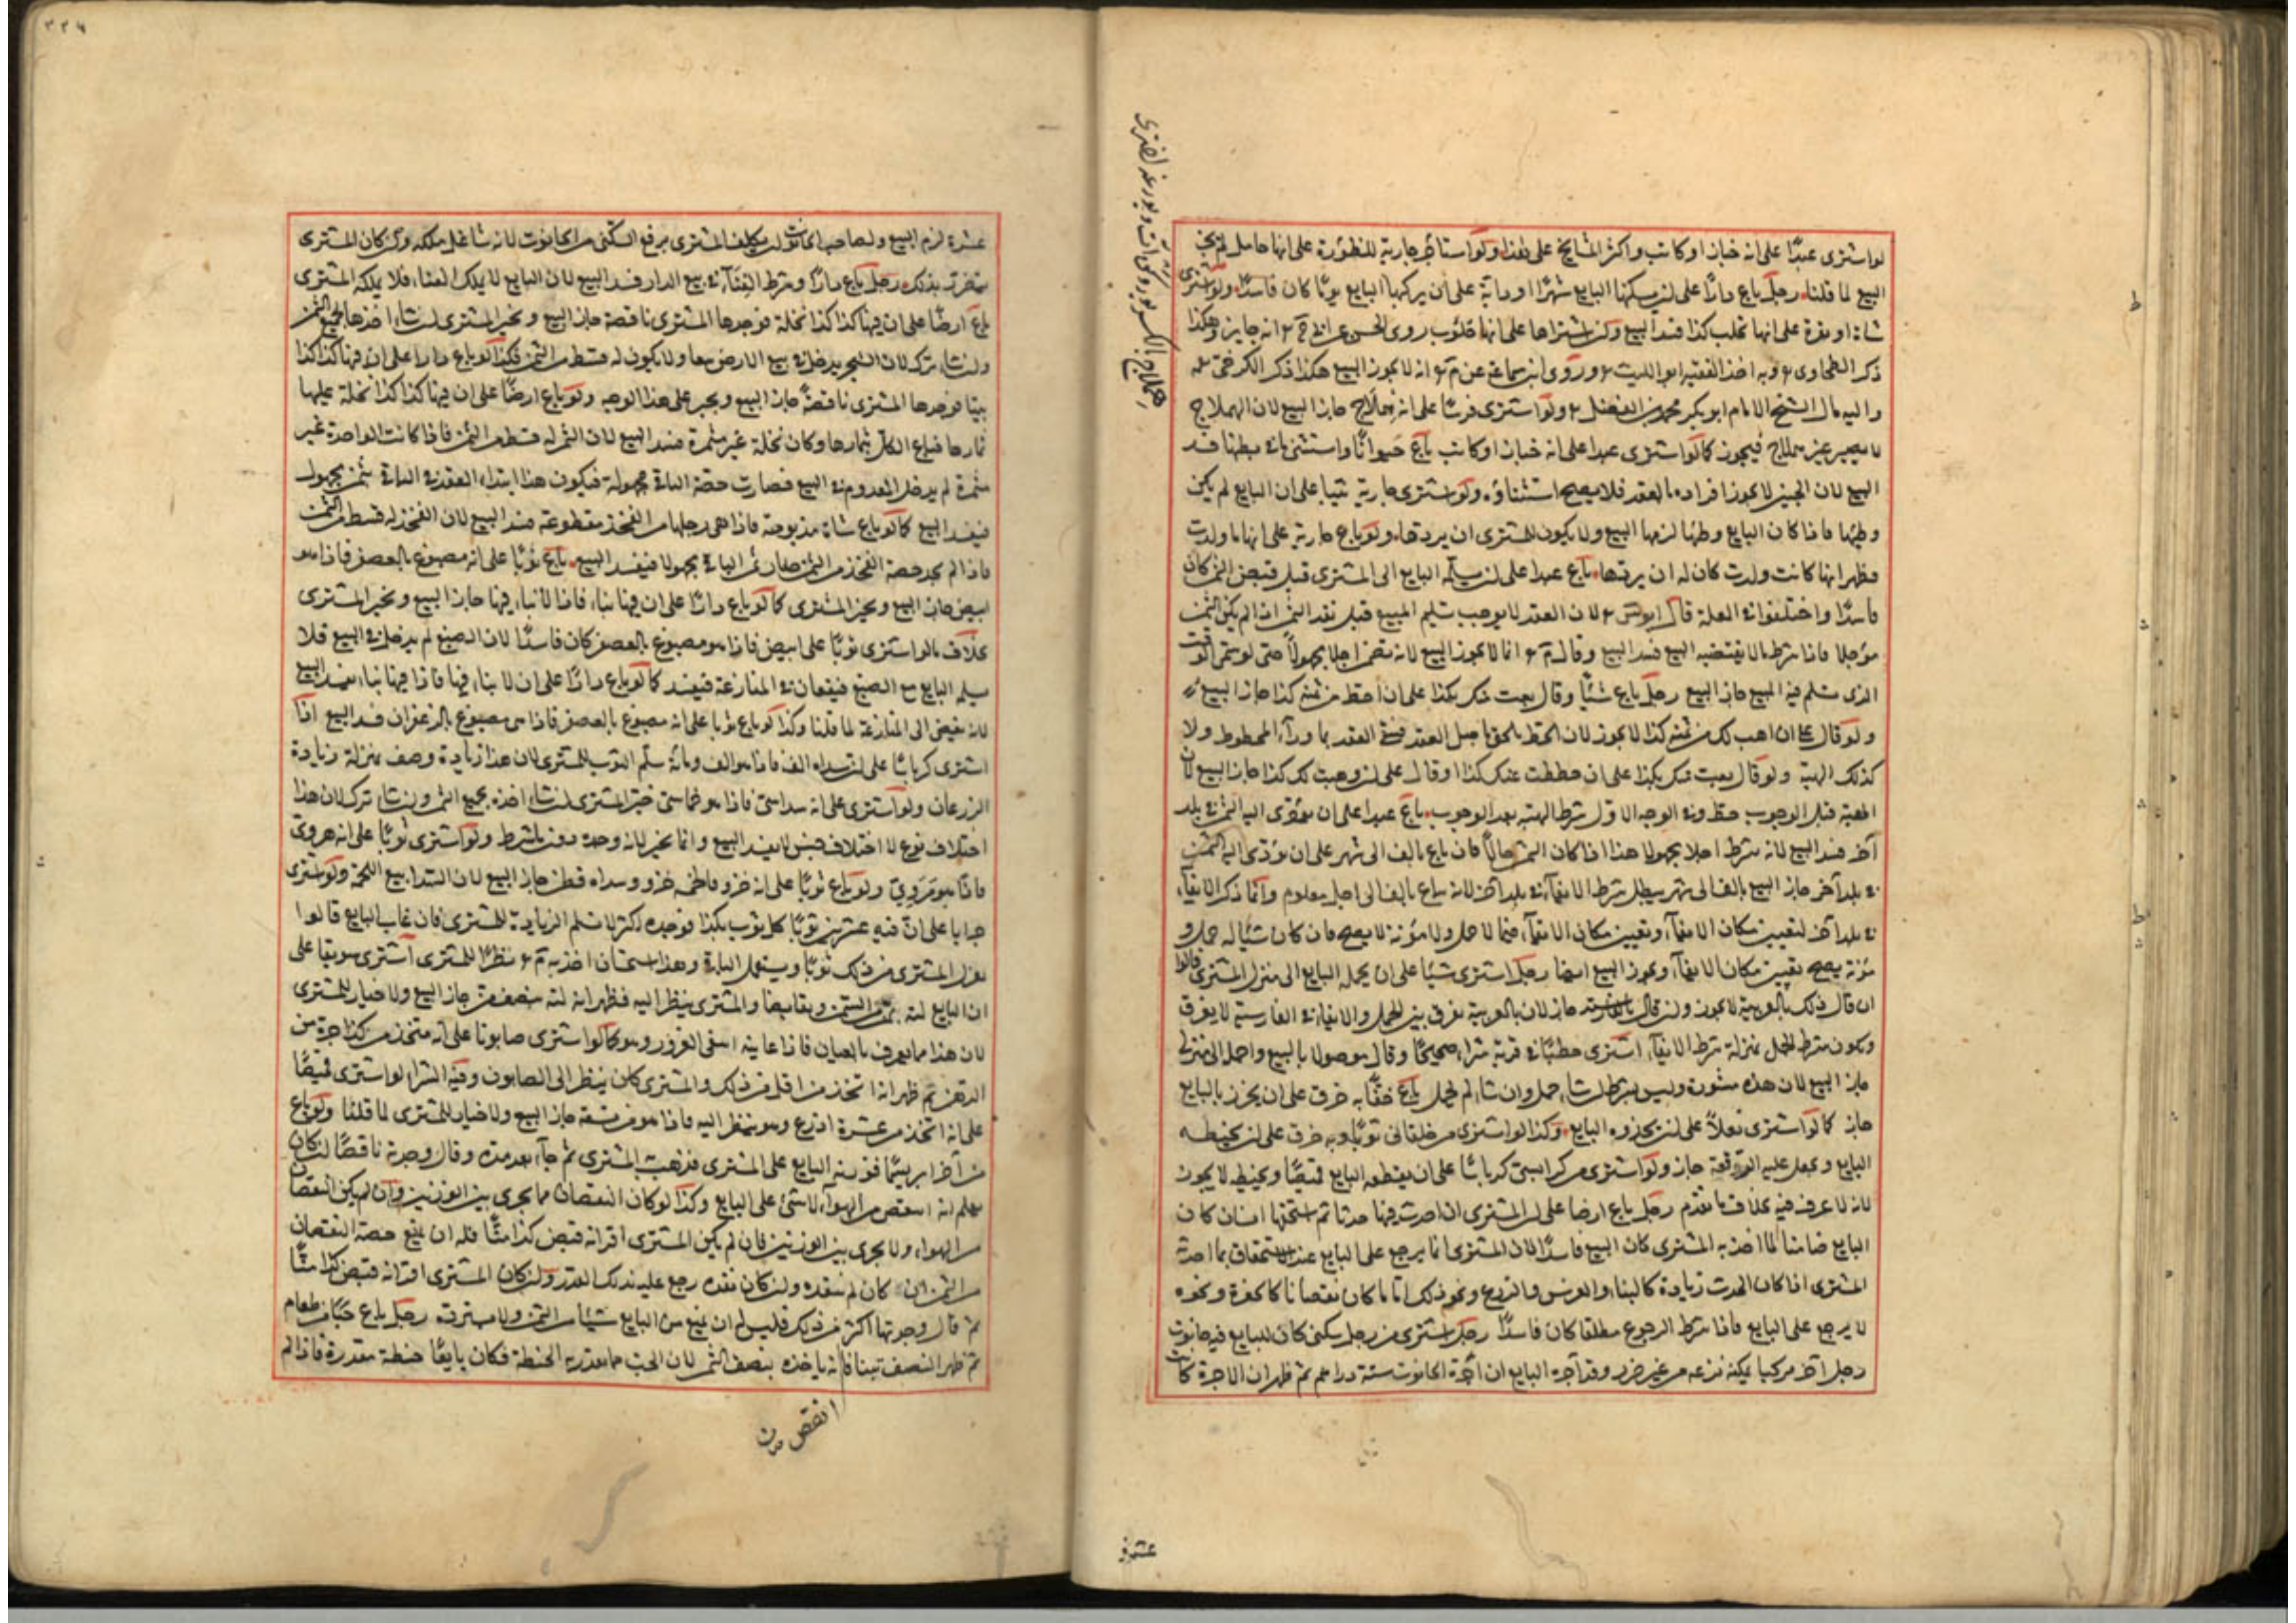 لو اشترى عبدًا على انه خباز او كاتب واكثر المشايخ على هذا ولو استاجر جارية للظؤرة على انها حامل لم يجز
البيع لما قلنا رجل باع دارًا على ان يسكنها البايع شهرًا او دابة على ان يركبها البايع يومًا كان فاسدًا ولو اشترى
شاة او بقرة على انها تحلب كذا فسد البيع ولو اشتراها على انها حلوب روى الحسن عن ابى ح انه جايز وهكذا
ذكر الطحاوى وبه اخذ الفقيه ابو الليث وروى ابن سماعة عن م انه لا يجوز البيع هكذا ذكر الكرخى
واليه مال الشيخ الامام ابو بكر محمد بن الفضل ولو اشترى فرسًا على انه هملاج جاز البيع لان الهملاج
لا يصير غير هملاج فيجوز كما لو اشترى عبدا على انه خباز او كاتب باع حيوانًا واستثنى ما فى بطنها فسد
البيع لان الجنين لا يجوز افراده بالعقد فلا يصح استثناؤه ولو اشترى جارية ثيبا على ان البايع لم يكن
وطئها فاذا كان البايع وطئها لزمها البيع ولا يكون للمشترى ان يردها ولو باع جارية على انها ما ولدت
فظهر انها كانت ولدت كان له ان يردها باع عبدا على ان يسلمه البايع الى المشترى قبل قبض الثمن كان
فاسدًا واختلفوا فى العلة قال ابو يس لان العقد لا يوجب تسليم المبيع قبل نقد الثمن اذا لم يكن الثمن
مؤجلا فاذا شرط ما لا يقتضيه البيع فسد البيع وقال م انما لا يجوز البيع لانه تضمن اجلا مجهولاً حتى لو سمى الوقت
الذى يسلم فيه المبيع جاز البيع رجل باع شيئًا وقال بعت منك بكذا على ان احط من ثمنه كذا جاز البيع
ولو قال على ان اهب لك من ثمنه كذا لا يجوز لان الحط يلحق باصل العقد فيبقى العقد بما وراء المحطوط ولا
كذلك الهبة ولو قال بعت منك بكذا على ان حططت عنك كذا او قال على ان وهبت لك كذا جاز البيع لان
الهبة قبل الوجوب حط وفى الوجه الاول شرط الهبة بعد الوجوب باع عبدا على ان يؤدى اليه الثمن فى بلد
آخر فسد البيع لانه شرط اجلا مجهولا هذا اذا كان الثمن حالًا فان باع بالف الى شهر على ان يؤدى اليه الثمن
فى بلد آخر جاز البيع بالف الى شهر ويبطل شرط الايفاء فى بلد آخر لانه باع بالف الى اجل معلوم وانما ذكر الايفاء
فى بلد آخر لتعيين مكان الايفاء وتعيين مكان الايفاء فيما لا حمل ولا مؤنة لا يصح فان كان شيئا له حمل و
مؤنة يصح تعيين مكان الايفاء ويجوز البيع ايضا رجل اشترى شيئا على ان يحمله البايع الى منزل المشترى قالوا
ان قال ذلك بالعربية لا يجوز وان قال بالفارسية جاز لان بالعربية يفرق بين الحمل والايفاء وفى الفارسية لا يفرق
ويكون شرط الحمل بمنزلة شرط الايفاء اشترى حطبًا فى قرية شراء صحيحًا وقال موصولا بالبيع واحمله الى منزلى
جاز البيع لان هذه مشورة وليس بشرط ان شاء حمل وان شاء لم يحمل باع خفًا به خرق على ان يخرز بالبايع
جاز كما لو اشترى نعلاً على ان يحذوه البايع وكذا لو اشترى من خلقانى ثوبًا وبه خرق على ان يخيطه
البايع ويجعل عليه الرقعة جاز ولو اشترى من كرابيسى كرباسًا على ان يقطعه البايع قميصًا ويخيطه لا يجوز
لانه لا عرف فيه بخلاف ما تقدم رجل باع ارضا على ان المشترى ان احدث فيها حدثا ثم استحقها انسان كان
البايع ضامنا لما اخذ به المشترى كان البيع فاسدًا لان المشترى انما يرجع على البايع عند الاستحقاق بما احدثه
المشترى اذا كان الحدث زيادة كالبناء والغرس والزرع ونحو ذلك اما ما كان نقصانا كالحفرة ونحوه
لا يرجع على البايع فاذا شرط الرجوع مطلقا كان فاسدًا رجل اشترى من رجل سكنى كان للبايع فى حانوت
رجل آخر مركبا يمكنه نزعه من غير ضرر وقد آجره البايع ان اجرة الحانوت ستة دراهم ثم ظهر ان الاجرة كانت
عشرة
عشرة لزم البيع ولصاحب الحانوت ان يكلف المشترى برفع السكنى من الحانوت لانه شاغل ملكه وان كان المشترى
يتضرر بذلك رجل باع دارًا وشرط الفناء فى بيع الدار فسد البيع لان البايع لا يملك الفناء فلا يملكه المشترى
باع ارضًا على ان فيها كذا كذا نخلة فوجدها المشترى ناقصة جاز البيع ويخير المشترى ان شاء اخذها بجميع الثمن
وان شاء ترك لان الشجر يدخل فى بيع الارض تبعا ولا يكون له قسط من الثمن فكذا لو باع دارا على ان فيها كذا كذا
بيتا فوجدها المشترى ناقصةً جاز البيع ويخير على هذا الوجه ولو باع ارضًا على ان فيها كذا كذا نخلة عليها
ثمارها فباع الكل بثمارها وكان نخلة غير مثمرة فسد البيع لان الثمر له قسط من الثمن فاذا كانت الواحدة غير
مثمرة لم يدخل المعدوم فى البيع فصارت حصة الباقى مجهولة فيكون هذا ابتداء العقد فى الباقى بثمن مجهول
فيفسد البيع كما لو باع شاة مذبوحة فاذا هى رجلها من الفخذ مقطوعة فسد البيع لان الفخذ له قسط من الثمن
فاذا لم يجد حصة الفخذ من الثمن صار ثمن الباقى مجهولا فيفسد البيع باع ثوبًا على انه مصبوغ بالعصفر فاذا هو
ابيض جاز البيع ويخير المشترى كما لو باع دارًا على ان فيها بناء فاذا لا بناء فيها جاز البيع ويخير المشترى
بخلاف ما لو اشترى ثوبًا على ابيض فاذا هو مصبوغ بالعصفر كان فاسدًا لان الصبغ لم يدخل فى البيع فلا
يسلمه البايع مع الصبغ فيقعان فى المنازعة فيفسد كما لو باع دارًا على ان لا بناء فيها فاذا فيها بناء يفسد البيع
لانه يفضى الى المنازعة لما قلنا وكذا لو باع ثوبا على انه مصبوغ بالعصفر فاذا هى مصبوغ بالزعفران فسد البيع اذا
اشترى كرباسًا على ان سداه الف فاذا هو الف ومائة سلم الثوب للمشترى لان هذا زيادة وصف بمنزلة زيادة
الزرعان ولو اشترى على انه سداسى فاذا هو خماسى خير المشترى ان شاء اخذه بجميع الثمن وان شاء ترك لان هذا
اختلاف نوع لا اختلاف جنس لا يفسد البيع وانما يخير لانه وجده دون ما شرط ولو اشترى ثوبًا على انه هروى
فاذا هو مروى ولو باع ثوبًا على انه خز فاذا لحمه خز وسداه قطن جاز البيع لان السدا تبع اللحمة ولو اشترى
جرابا على ان فيه عشرين ثوبًا كل ثوب بكذا فوجده اكثر لا تسلم الزيادة للمشترى فان غاب البايع قالوا
يعزل المشترى من ذلك ثوبًا ويستعمل الباقى وهذا استحسان اخذ به م نظرًا للمشترى اشترى سويقا على
ان البايع لته بمن من السمن وتقابضا والمشترى ينظر اليه فظهر انه لته بنصف من جاز البيع ولا خيار للمشترى
لان هذا مما يعرف بالعيان فاذا عاينه انتفى الغرور وهو كما لو اشترى صابونا على انه متخذ من كذا جرة من
الدهن ثم ظهر انه اتخذ من اقل من ذلك والمشترى كان ينظر الى الصابون وقت الشراء لو اشترى قميصًا
على انه اتخذ من عشرة اذرع وهو ينظر اليه فاذا هو من تسعة جاز البيع ولا خيار للمشترى لما قلنا ولو باع
من آخر ابريسمًا فوزنه البايع على المشترى فذهب المشترى ثم جاء بعد مدة وقال وجدته ناقصًا ان كان
يعلم انه انتقص من الهواء لا شئ على البايع وكذا لو كان النقصان مما يجرى بين الوزنين وان لم يكن النقصان
من الهواء ولا يجرى بين الوزنين فان لم يكن المشترى اقر انه قبض كذا منًا فله ان يمنع حصة النقصان
من الثمن ان كان لم ينقده وان كان نقده رجع عليه بذلك القدر وان كان المشترى اقر انه قبض كذا منًا
ثم قال وجدتها اكثر من ذلك فليس له ان يمنع من البايع شيئا من الثمن ولا يسترده رجل باع حبًا من طعام
ثم ظهر النصف تبنا فانه ياخذه بنصف الثمن لان الحب مما يقدر به الحنطة فكان بايعًا حنطة مقدرة فاذا لم
انقص من